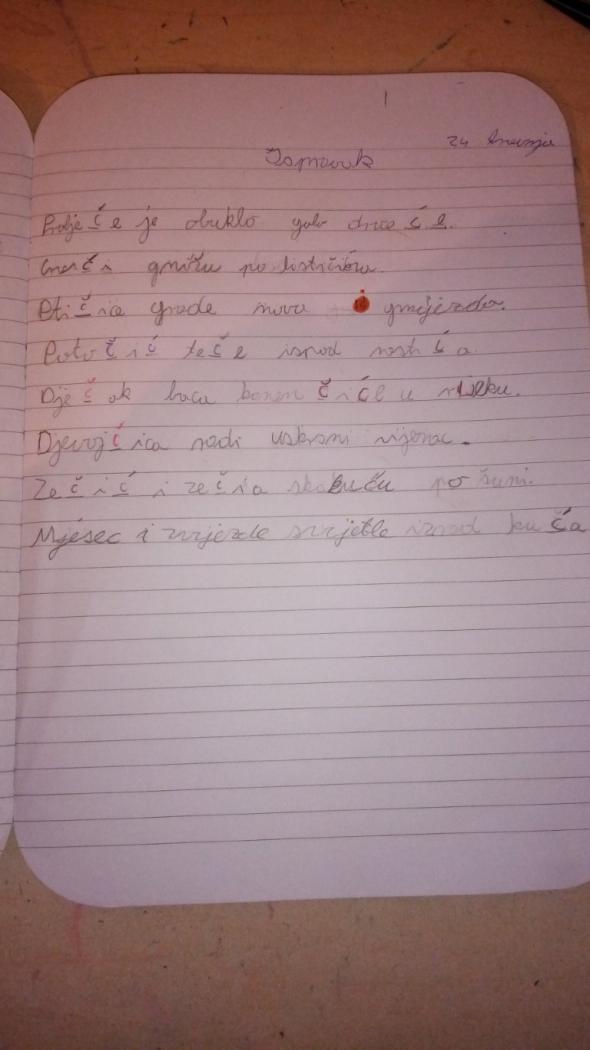 24 travnja
Ispravak
Proljeće je obuklo golo drveće.
Mravči gmižu po listićima.
Ptičice grade nova gnijezda.
Potočić teče ispod mostića.
Dječak baca kamenčiće u rijeku.
Djevojčica radi uskrsni vijenac.
Zečić i zečica skakuću po šumi.
Mjesec i zvijezde svijetle iznad kuća